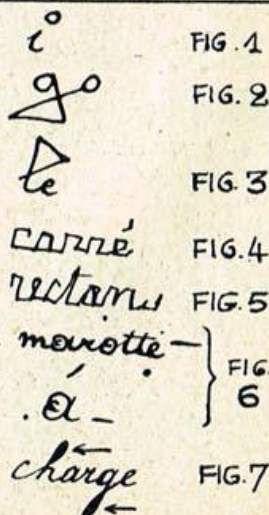 i FIG.1
go FIG.2
le FIG.3
carré FIG.4
FIG.5
marotte - FIG. 6
. a -
charge FIG.7